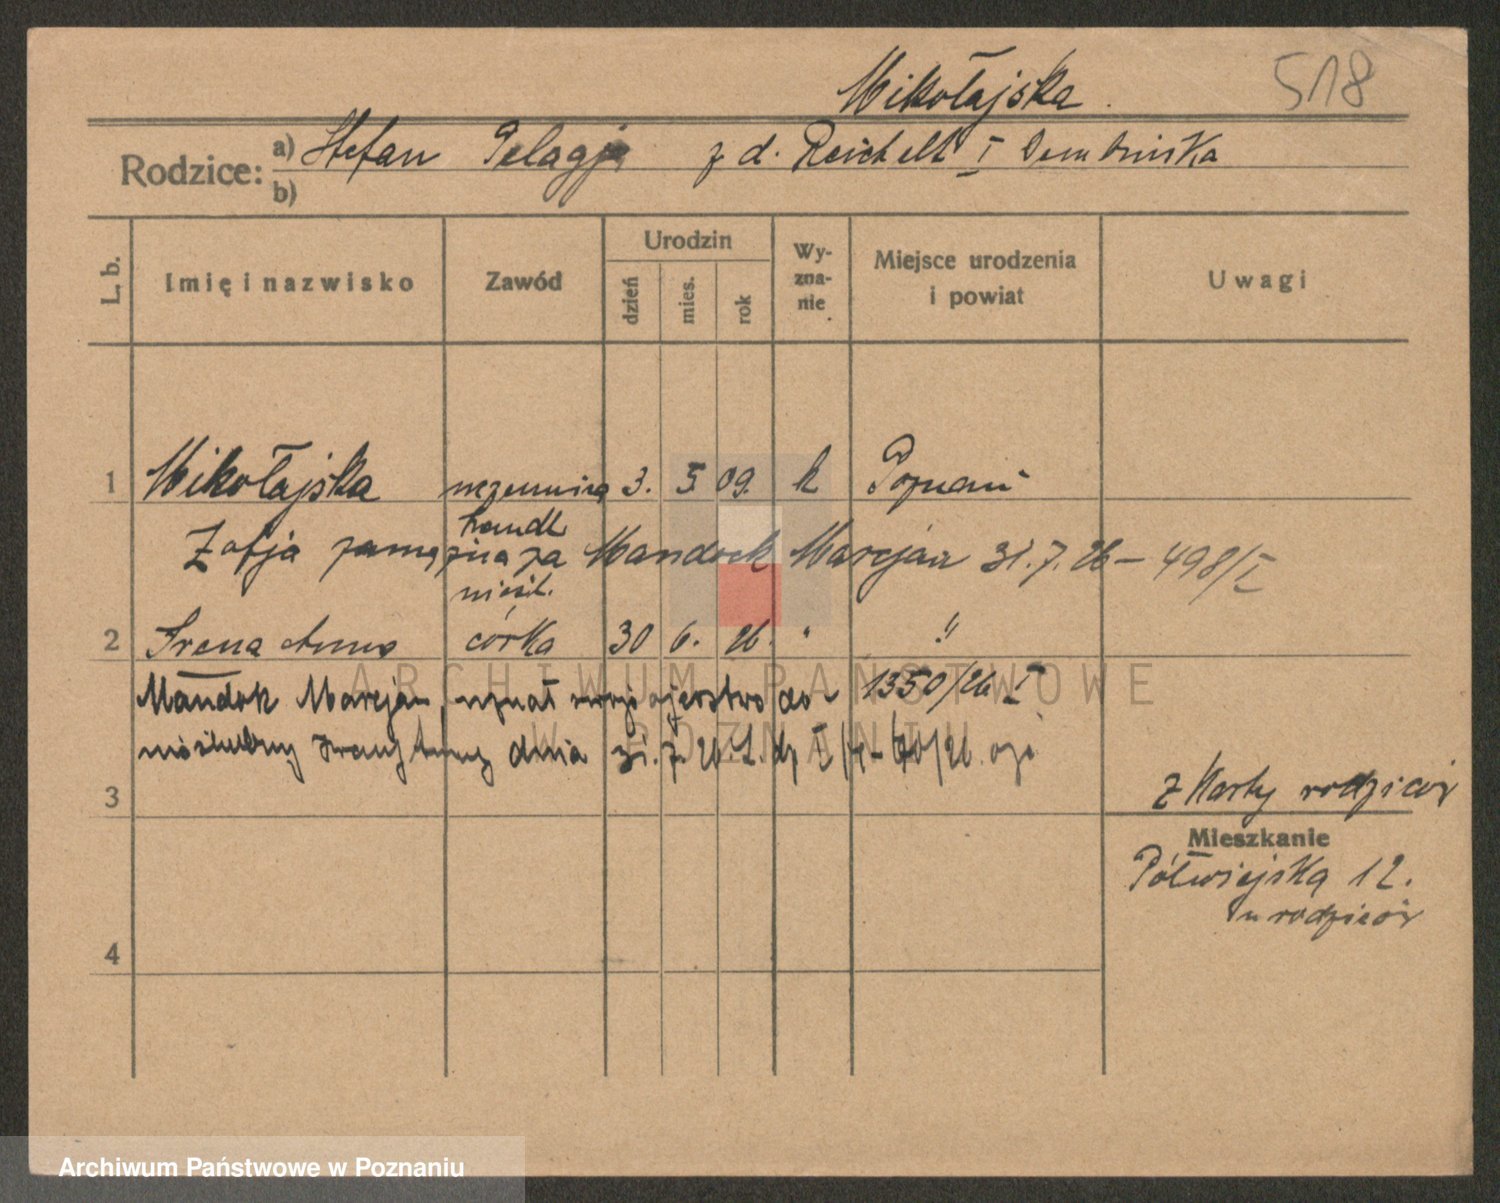 Mikołajska.
518
Rodzice: a) Stefan Pelagja z d. Reichelt I Dembińska
b)
L. b.
Imię i nazwisko
Zawód
Urodzin
dzień
mies.
rok
Wy-
zna-
nie
Miejsce urodzenia
i powiat
Uwagi
1 Mikołajska uczennica 3. 5. 09. k Poznań
handl.
Zofja zamężna za Mandock Marcjan 31.7.26 – 498/I
nieśl.
2 Irena Anna córka 30 6. 26. " "
Mandok Marcjan, uznał swoje ojcostwo do 1350/26 I
nieślubnej Ireny Anny dnia 31.7.26
3
z karty rodziców
Mieszkanie
Półwiejska 12.
u rodziców
4
ARCHIWUM PAŃSTWOWE
W POZNANIU
Archiwum Państwowe w Poznaniu